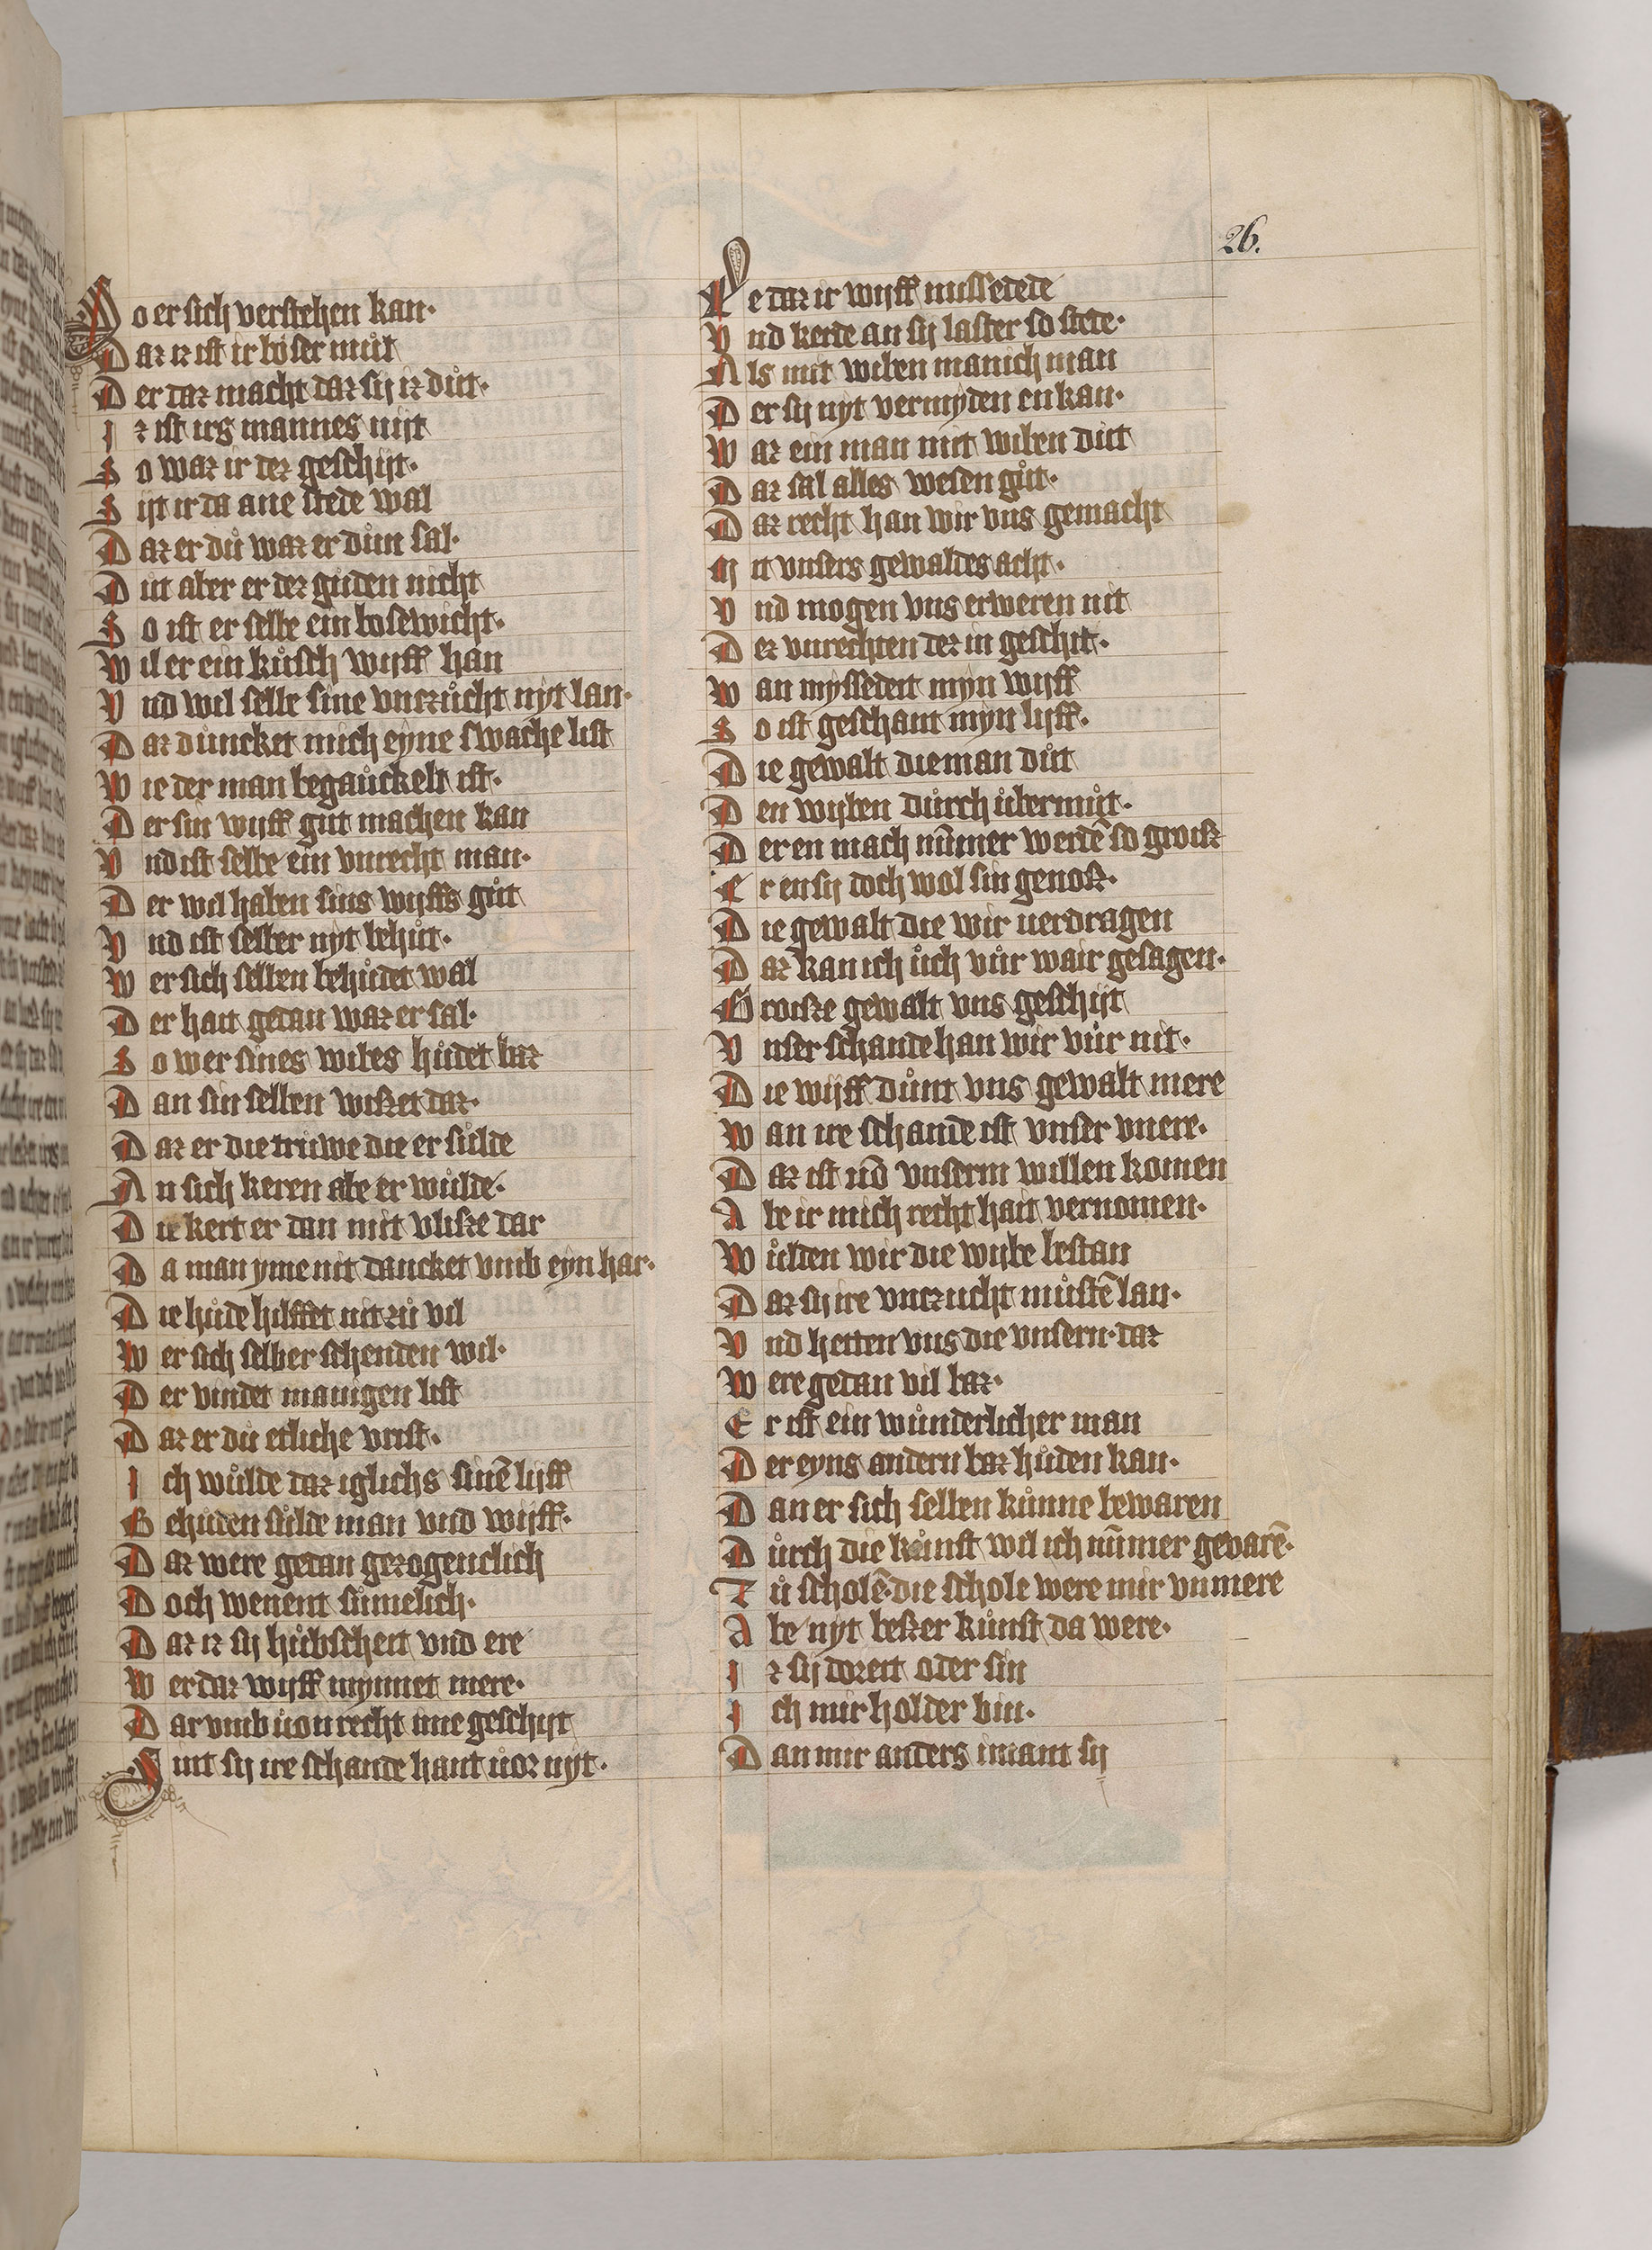 26.
So er sich verstehen kan·
Daz iz ist ir boser můt
Der daz macht daz sij iz důt·
Iz ist irs mannes nijt
So waz ir dez geschijt·
Sijt ir da ane stede wal
Daz er dů waz er důn sal·
Důt aber er dez gůden nicht
So ist er selbe ein bosewicht·
Wil er ein kůsch wijff han
Vnd wil selbe sine vnczůcht nyt lan·
Daz důncket mich eyne swache list
Wie der man begaůckelt ist·
Der sin wijff gut machen kan
Vnd ist selbe ein vnrecht man·
Der wil haben sins wijffs gůt
Vnd ist selber nyt behůt·
Wer sich selben behůdet wal
Der hait getan waz er sal·
So wer sines wibes hůdet baz
Dan sin selben wißet daz·
Daz er die trůwe die er sůlde
An sich keren abe er wůlde·
Die kert er dan mit vlißze dar
Da man yme nit dancket vmb eyn har·
Die hůde hilffet nit zů vil
Wer sich selber schenden wil·
Der vindet manigen list
Daz er dů etliche vrist·
Ich wůlde daz iglichs sinē lijff
Behůden sůlde man vnd wijff·
Daz were getan gezogenclich
Doch wenent sůmelich·
Daz iz sij hůbscheit vnd ere
Wer daz wijff mynnet mere·
Dar vmb ůon recht ime geschijt
Sint sij ire schande hant ůor nyt·
Be daz ir wijff missetede
Vnd kerte an sij laster so stete·
Als mit wiben manich man
Der sij nyt vermyden enkan·
Waz ein man mit wiben důt
Daz sal alles wesen gůt·
Daz recht han wir vns gemacht
Mit vnsers gewaldes acht·
Vnd mogen vns erweren nit
Dez vnrechten dez in geschit·
Wan myssedeit myn wijff
So ist geschant myn lijff·
Die gewalt die man důt
Den wijben důrch ůbermůt·
Der en mach nům̄er werdē so groiß
Er ensij doch wol sin genoß·
Die gewalt die wir uerdragen
Daz kan ich ůch vůr wair gesagen·
Groißze gewalt vns geschijt
Vnser schande han wir vůr nit·
Die wijff důnt vns gewalt mere
Wan ire schande ist vnser vnere·
Daz ist ūō vnserm willen komen
Abe ir mich recht hait vernomen·
Wůlden wir die wijbe bestan
Daz sij ire vnczucht můstē lan·
Vnd hetten vns die vnsern· daz
Were getan vil baz·
Er ist ein wůnderlicher man
Der eyns andern baz hůden kan·
Dan er sich selben kůnne bewaren
Důrch die kůnst wil ich nům̄er gevarē·
Zů scholē· die schole were mir vnmere
Abe nyt beßer kůnst da were·
Iz sij doreit oder sin
Ich mir holder bin·
Dan mir anders imant sij